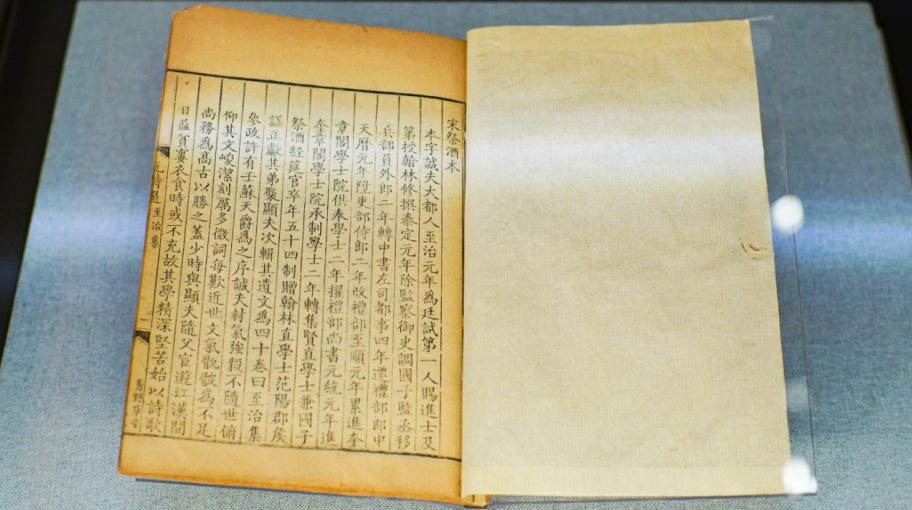 宋祭酒本
本字誠夫大都人至治元年為廷試第一人賜進士及
第授翰林修撰泰定元年除監察御史調國子監丞移
兵部員外郎二年轉中書左司都事四年遷禮部郎中
天曆元年陞吏部侍郎二年改禮部至順元年累進奎
章閣學士院供奉學士二年擢禮部尚書元統元年進
奎章閣學士院承制學士二年轉集賢直學士兼國子
祭酒經筵官卒年五十四制贈翰林直學士范陽郡侯
謚正獻其弟褧顯夫次輯其遺文為四十卷曰至治集
參政許有壬蘇天爵為之序誠夫材氣強毅不隨世俯
仰其文峻潔刻厲多微詞每歎近世文氣骫骳為不足
尚務為高古以勝之蓋少時與顯夫隨父宦遊江漢間
日益貧窶衣食時或不充故其學精深堅苦始以詩歌
元詩選 至治集
一
秀野草堂